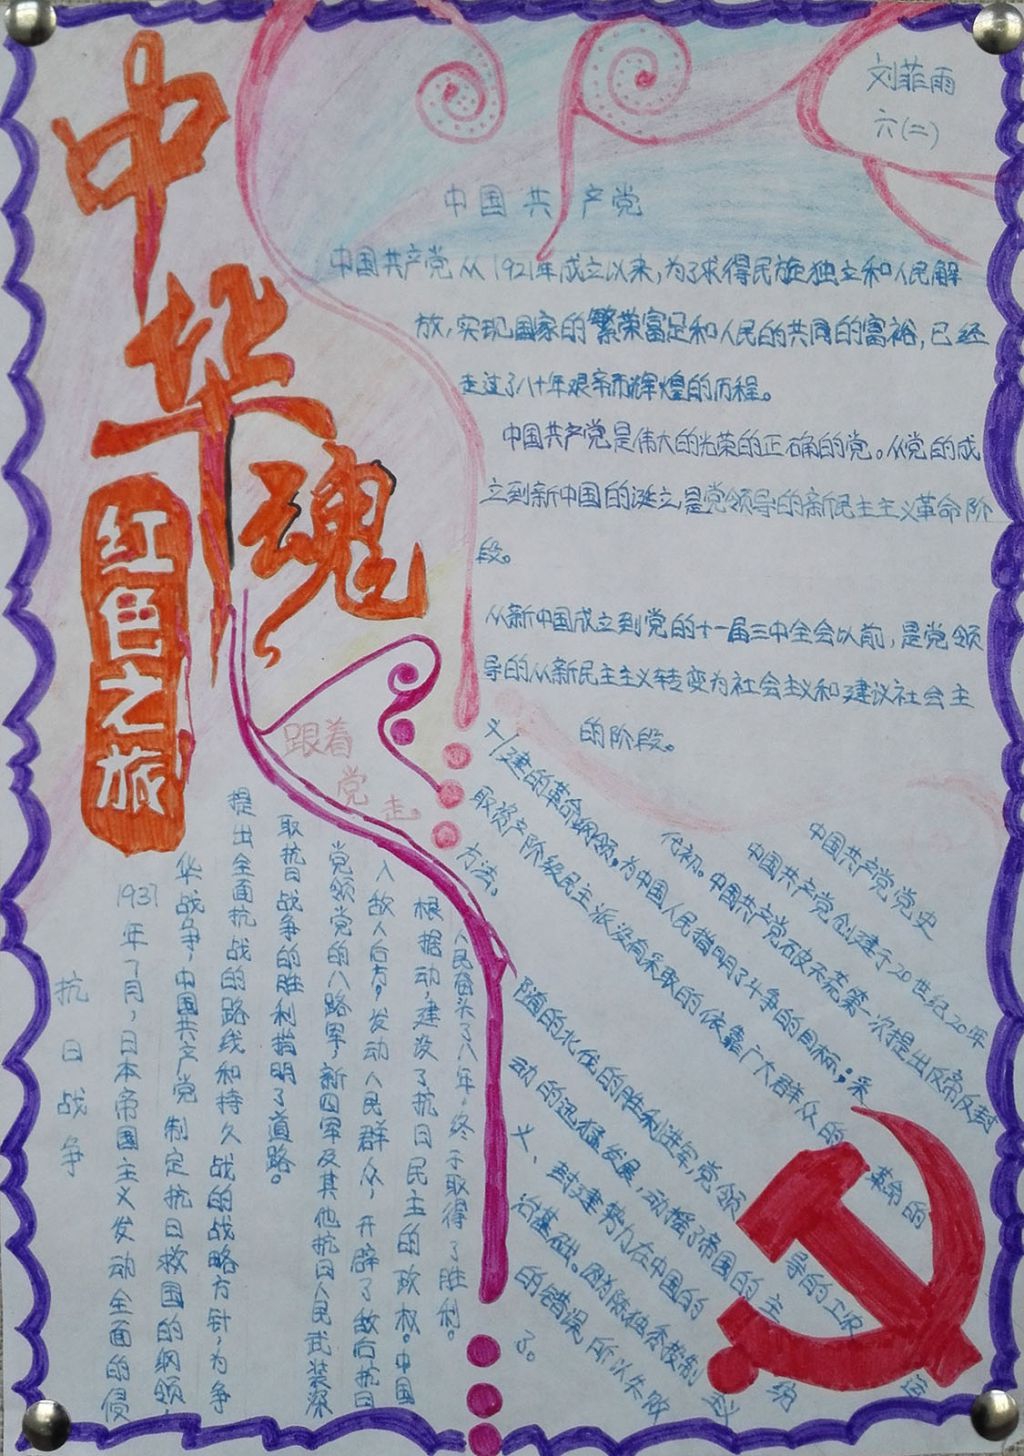 中华魂
红色之旅
刘菲雨
六(二)
中国共产党
中国共产党从1921年成立以来,为了求得民族独立和人民解
放,实现国家的繁荣富足和人民的共同的富裕,已经
走过了八十年艰帝而辉煌的历程。
中国共产党是伟大的光荣的正确的党。从党的成
立到新中国的诞立,是党领导的新民主主义革命阶
段。
从新中国成立到党的十一届三中全会以前,是党领
导的从新民主主义转变为社会主义和建议社会主
义 的阶段。
跟着
党走。
中国共产党党史
中国共产党创建于20世纪20年
代初。中国共产党破天荒第一次提出反帝反封
建的革命纲领,为中国人民指明了斗争的目标;采
取资产阶级民主派没有采取的依靠广大群众的 革命的
方法。
随的北伐的胜利进军,党领 导的工农
动的迅猛发展,动摇了帝国的主
义、封建势力在中国的
治基础。因为陈独秀投制
的错误,所以失败
了。
抗日战争
1937年7月,日本帝国主义发动全面的侵
华战争,中国共产党 制定抗日救国的纲领
提出全面抗战的路线和持久战的战略方针,为争
取抗日战争的胜利指明了道路。
党领党的八路军,新四军及其他抗日人民武装深
入敌人后方,发动人民群众,开辟了敌后抗日
根据动,建没了抗日民主的政权。中国
人民奋头了八年,终于取得了胜利。